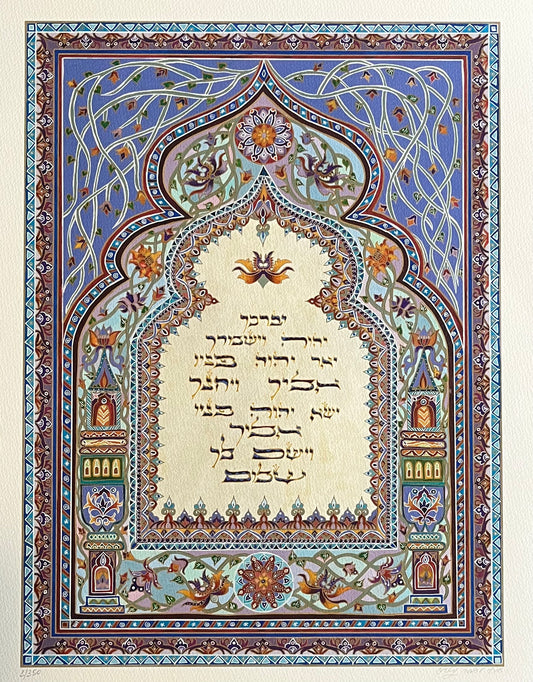 יברכך
יהוה וישמרך
יאר יהוה פניו
אליך ויחנך
ישא יהוה פניו
אליך
וישם לך
שלום
2/350